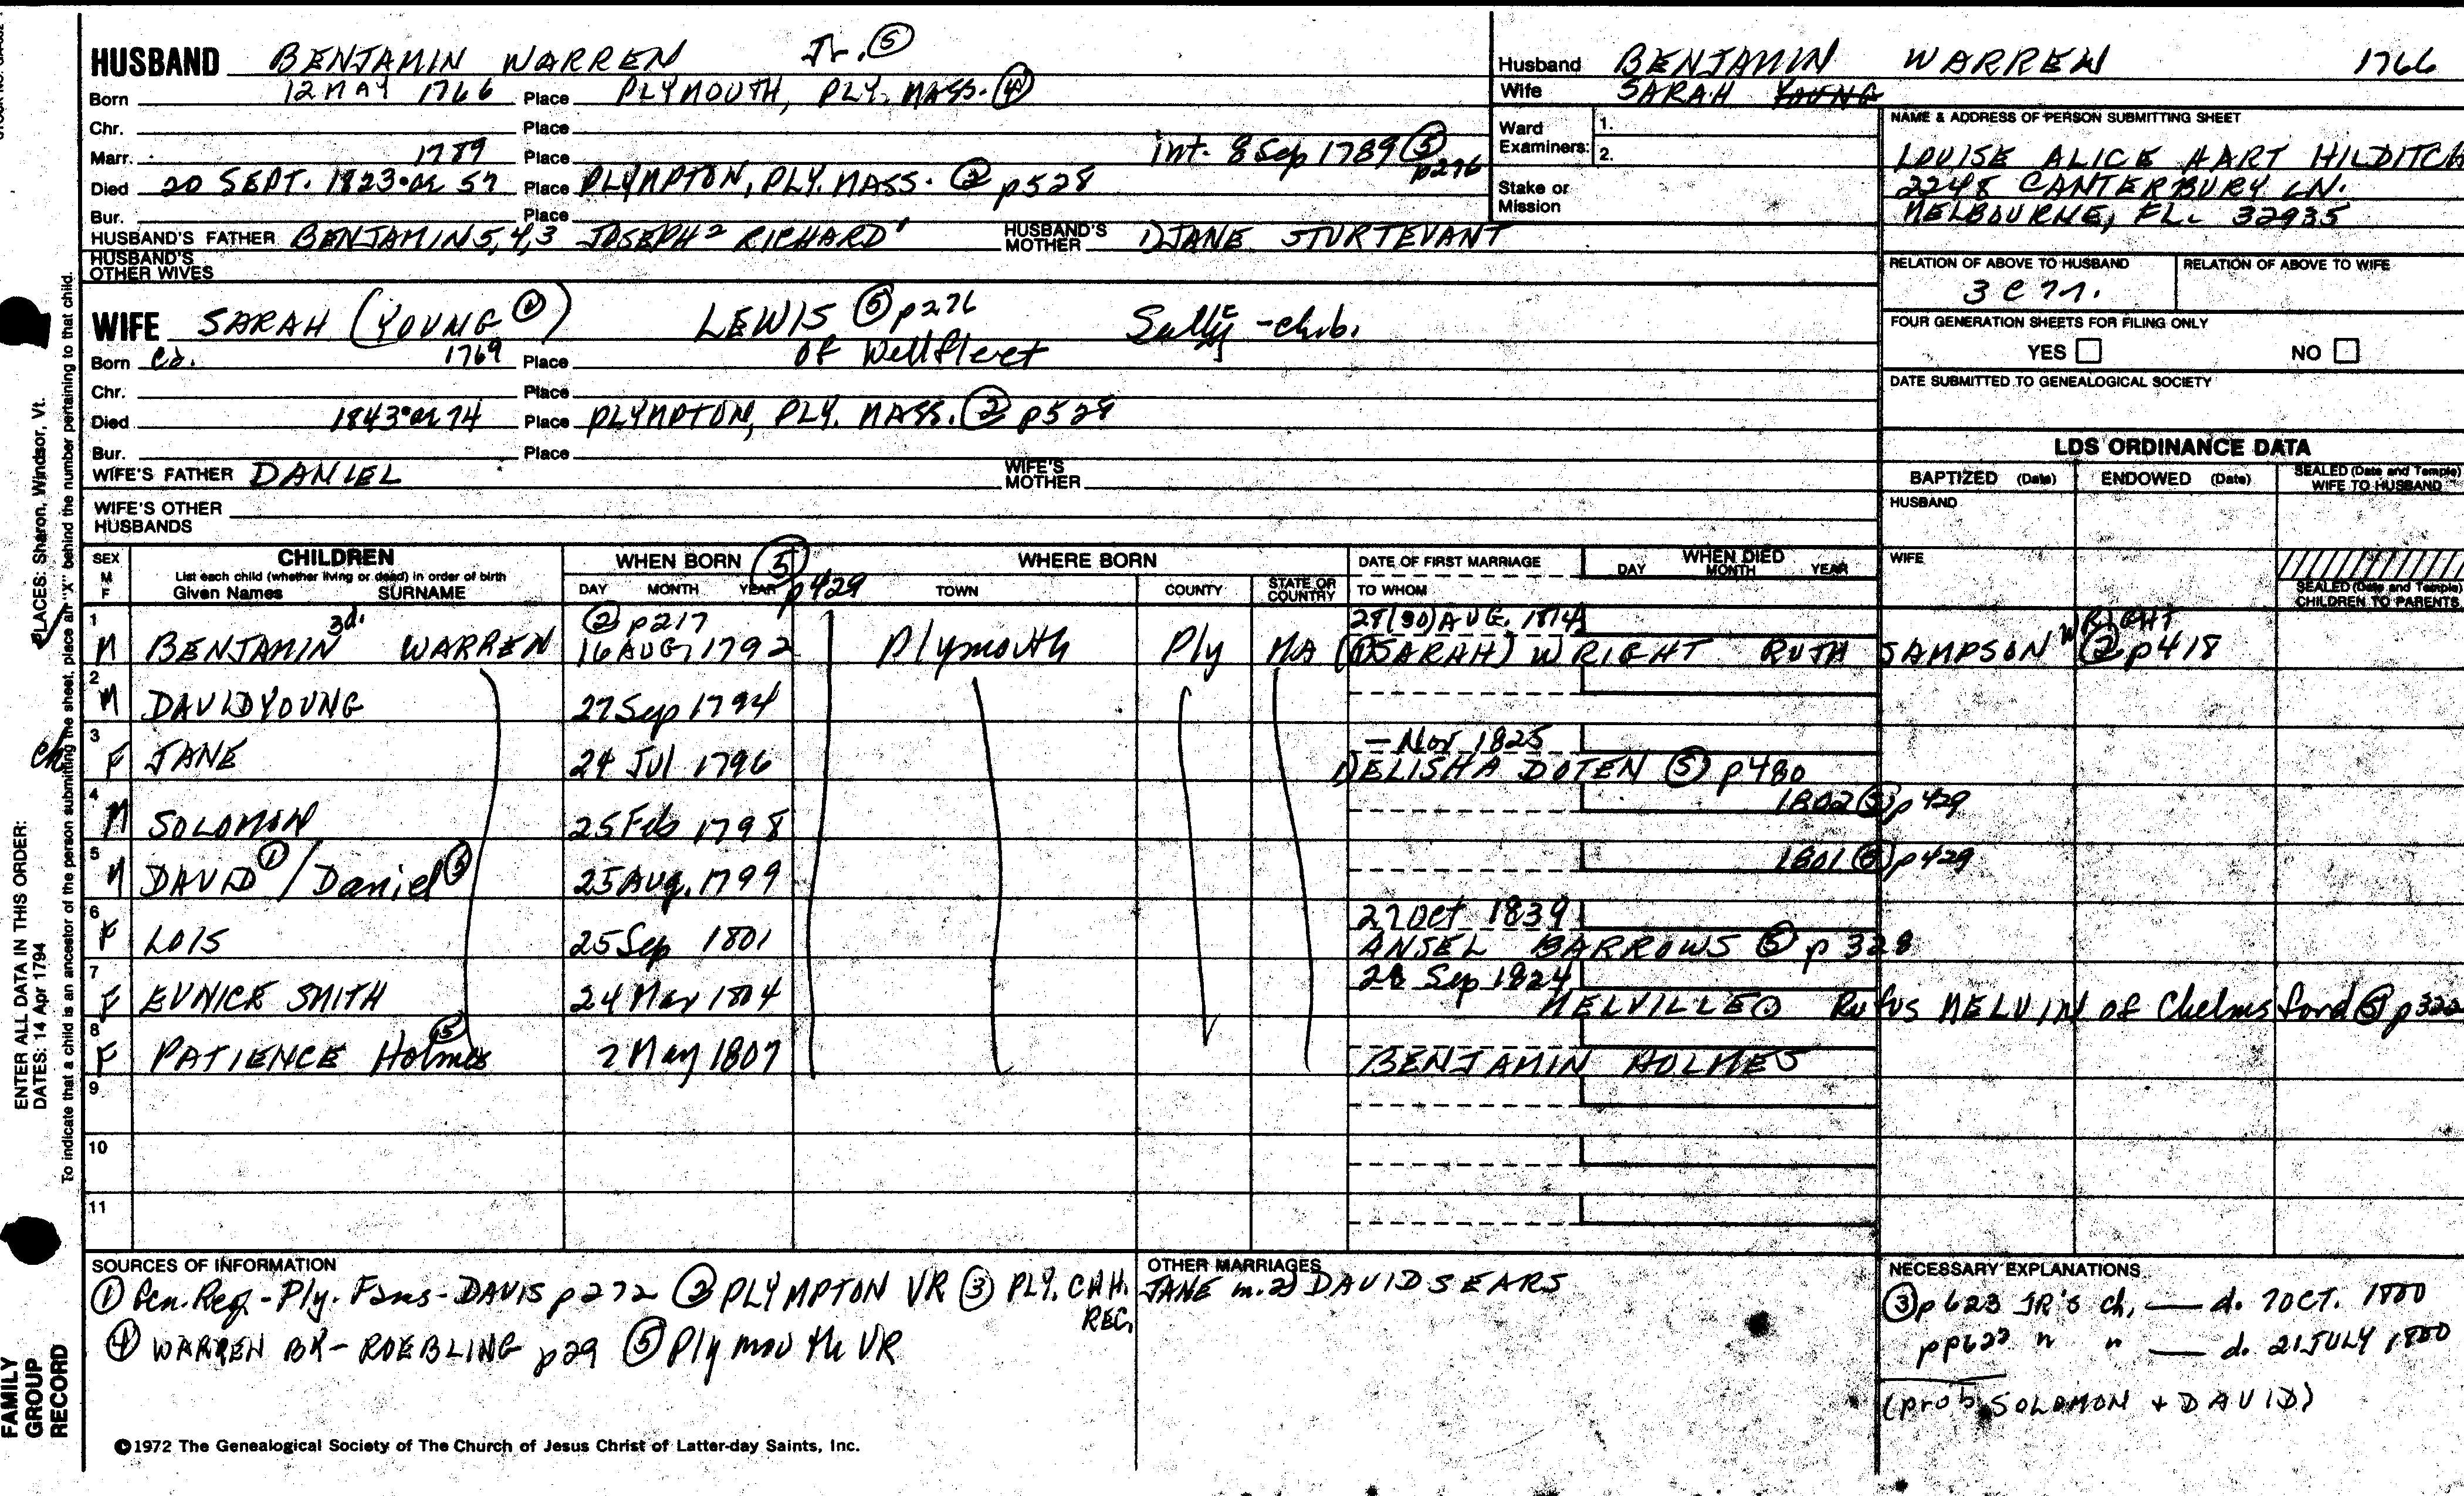 HUSBAND BENJAMIN WARREN Jr. ⑤
Born 12 MAY 1766 Place PLYMOUTH, PLY. MASS. ④
Chr. Place
Marr. 1789 Place int. 8 Sep 1789 ⑤ p276
Died 20 SEPT. 1823 ae 57 Place PLYMPTON, PLY. MASS. ② p528
Bur. Place
HUSBAND'S FATHER BENJAMIN 5,4,3 JOSEPH 2 RICHARD 1 HUSBAND'S MOTHER 1) JANE STURTEVANT
HUSBAND'S OTHER WIVES
WIFE SARAH (YOUNG ②) LEWIS ⑤ p276 Sally -chrb.
Born ca. 1769 Place of Wellfleet
Chr. Place
Died 1843 ae 74 Place PLYMPTON, PLY. MASS. ② p528
Bur. Place
WIFE'S FATHER DANIEL WIFE'S MOTHER
WIFE'S OTHER HUSBANDS
Husband BENJAMIN WARREN 1766
Wife SARAH YOUNG
Ward Examiners: 1.
2.
Stake or Mission
NAME & ADDRESS OF PERSON SUBMITTING SHEET
LOUISE ALICE HART HILDITCH
2248 CANTERBURY LN.
MELBOURNE, FL. 32935
RELATION OF ABOVE TO HUSBAND RELATION OF ABOVE TO WIFE
3 C
FOUR GENERATION SHEETS FOR FILING ONLY
YES NO
DATE SUBMITTED TO GENEALOGICAL SOCIETY
LDS ORDINANCE DATA
BAPTIZED (Date) ENDOWED (Date) SEALED (Date and Temple) WIFE TO HUSBAND
HUSBAND
WIFE
SEALED (Date and Temple) CHILDREN TO PARENTS
SEX M F CHILDREN WHEN BORN ⑤ p429 WHERE BORN DATE OF FIRST MARRIAGE WHEN DIED
List each child (whether living or dead) in order of birth
Given Names SURNAME DAY MONTH YEAR TOWN COUNTY STATE OR COUNTRY TO WHOM DAY MONTH YEAR
1 3d. ② p217 28 (30) AUG. 1814 WRIGHT
M BENJAMIN WARREN 16 AUG, 1792 Plymouth Ply MA (SARAH) WRIGHT RUTH SAMPSON ② p418
2 M DAVID YOUNG 27 Sep 1794
3 — Nov 1825
F JANE 24 Jul 1796 1) ELISHA DOTEN ⑤ p480
4 1802 ⑤ p429
M SOLOMON 25 Feb 1798
5 1801 ⑤ p429
M DAVID ① / Daniel ⑤ 25 Aug, 1799
6 27 Oct 1839
F LOIS 25 Sep 1801 ANSEL BARROWS ⑤ p 328
7 28 Sep 1824
F EUNICE SMITH 24 Mar 1804 MELVILLE Rufus MELVIN of Chelmsford ⑤ p322
8 F PATIENCE Holmes ⑤ 2 May 1807 BENJAMIN HOLMES
9
10
11
SOURCES OF INFORMATION
① Gen. Reg. - Ply. Fams - DAVIS p 272 ② PLYMPTON VR ③ PLY. CHH. REC.
④ WARREN BK - ROEBLING p29 ⑤ Plymouth VR
OTHER MARRIAGES
JANE m. 2) DAVID SEARS
NECESSARY EXPLANATIONS
③ p 623 JR'S ch, — d. 7 OCT. 1800
pp622 " " — d. 21 JULY 1800
(prob. SOLOMON + DAVID)
©1972 The Genealogical Society of The Church of Jesus Christ of Latter-day Saints, Inc.
PLACES: Sharon, Windsor, Vt.
To indicate that a child is an ancestor of the person submitting the sheet, place an "X" behind the number pertaining to that child.
ENTER ALL DATA IN THIS ORDER:
DATES: 14 Apr 1794
FAMILY GROUP RECORD